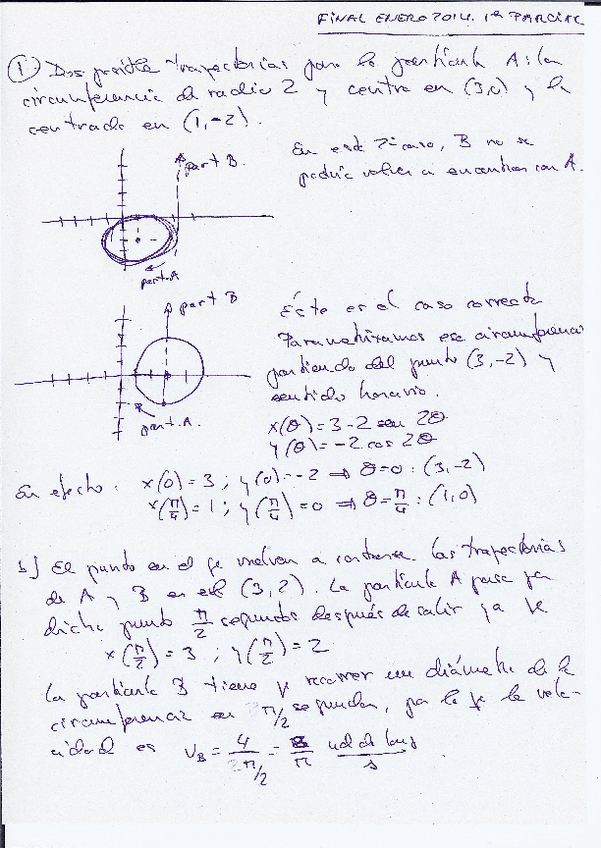 FINAL ENERO 2014. 1er PARCIAL
① Dos posibles trayectorias para la partícula A: la
circunferencia de radio 2 y centro en (3,0) y la
centrada en (1,-2).
En este 2º caso, B no se
podría volver a encontrar con A.
part B.
part.A
part B
part.A.
Éste es el caso correcto
Parametrizamos esa circunferencia
partiendo del punto (3,-2) y
sentido horario.
x(θ)=3-2 sen 2θ
y(θ)=-2 cos 2θ
En efecto: x(0)=3; y(0)=-2 ⇒ θ=0: (3,-2)
x(π/4)=1; y(π/4)=0 ⇒ θ=π/4: (1,0)
b) El punto en el q se vuelven a las trayectorias
de A y B es el (3,2). La partícula A pasa por
dicho punto π/2 segundos después de salir ya q
x(π/2)=3; y(π/2)=2
La partícula B tiene q recorrer un diámetro de la
circunferencia en π/2 segundos, por lo q la velo-
cidad es V_B = 4/(π/2) = 8/π ud de long/s